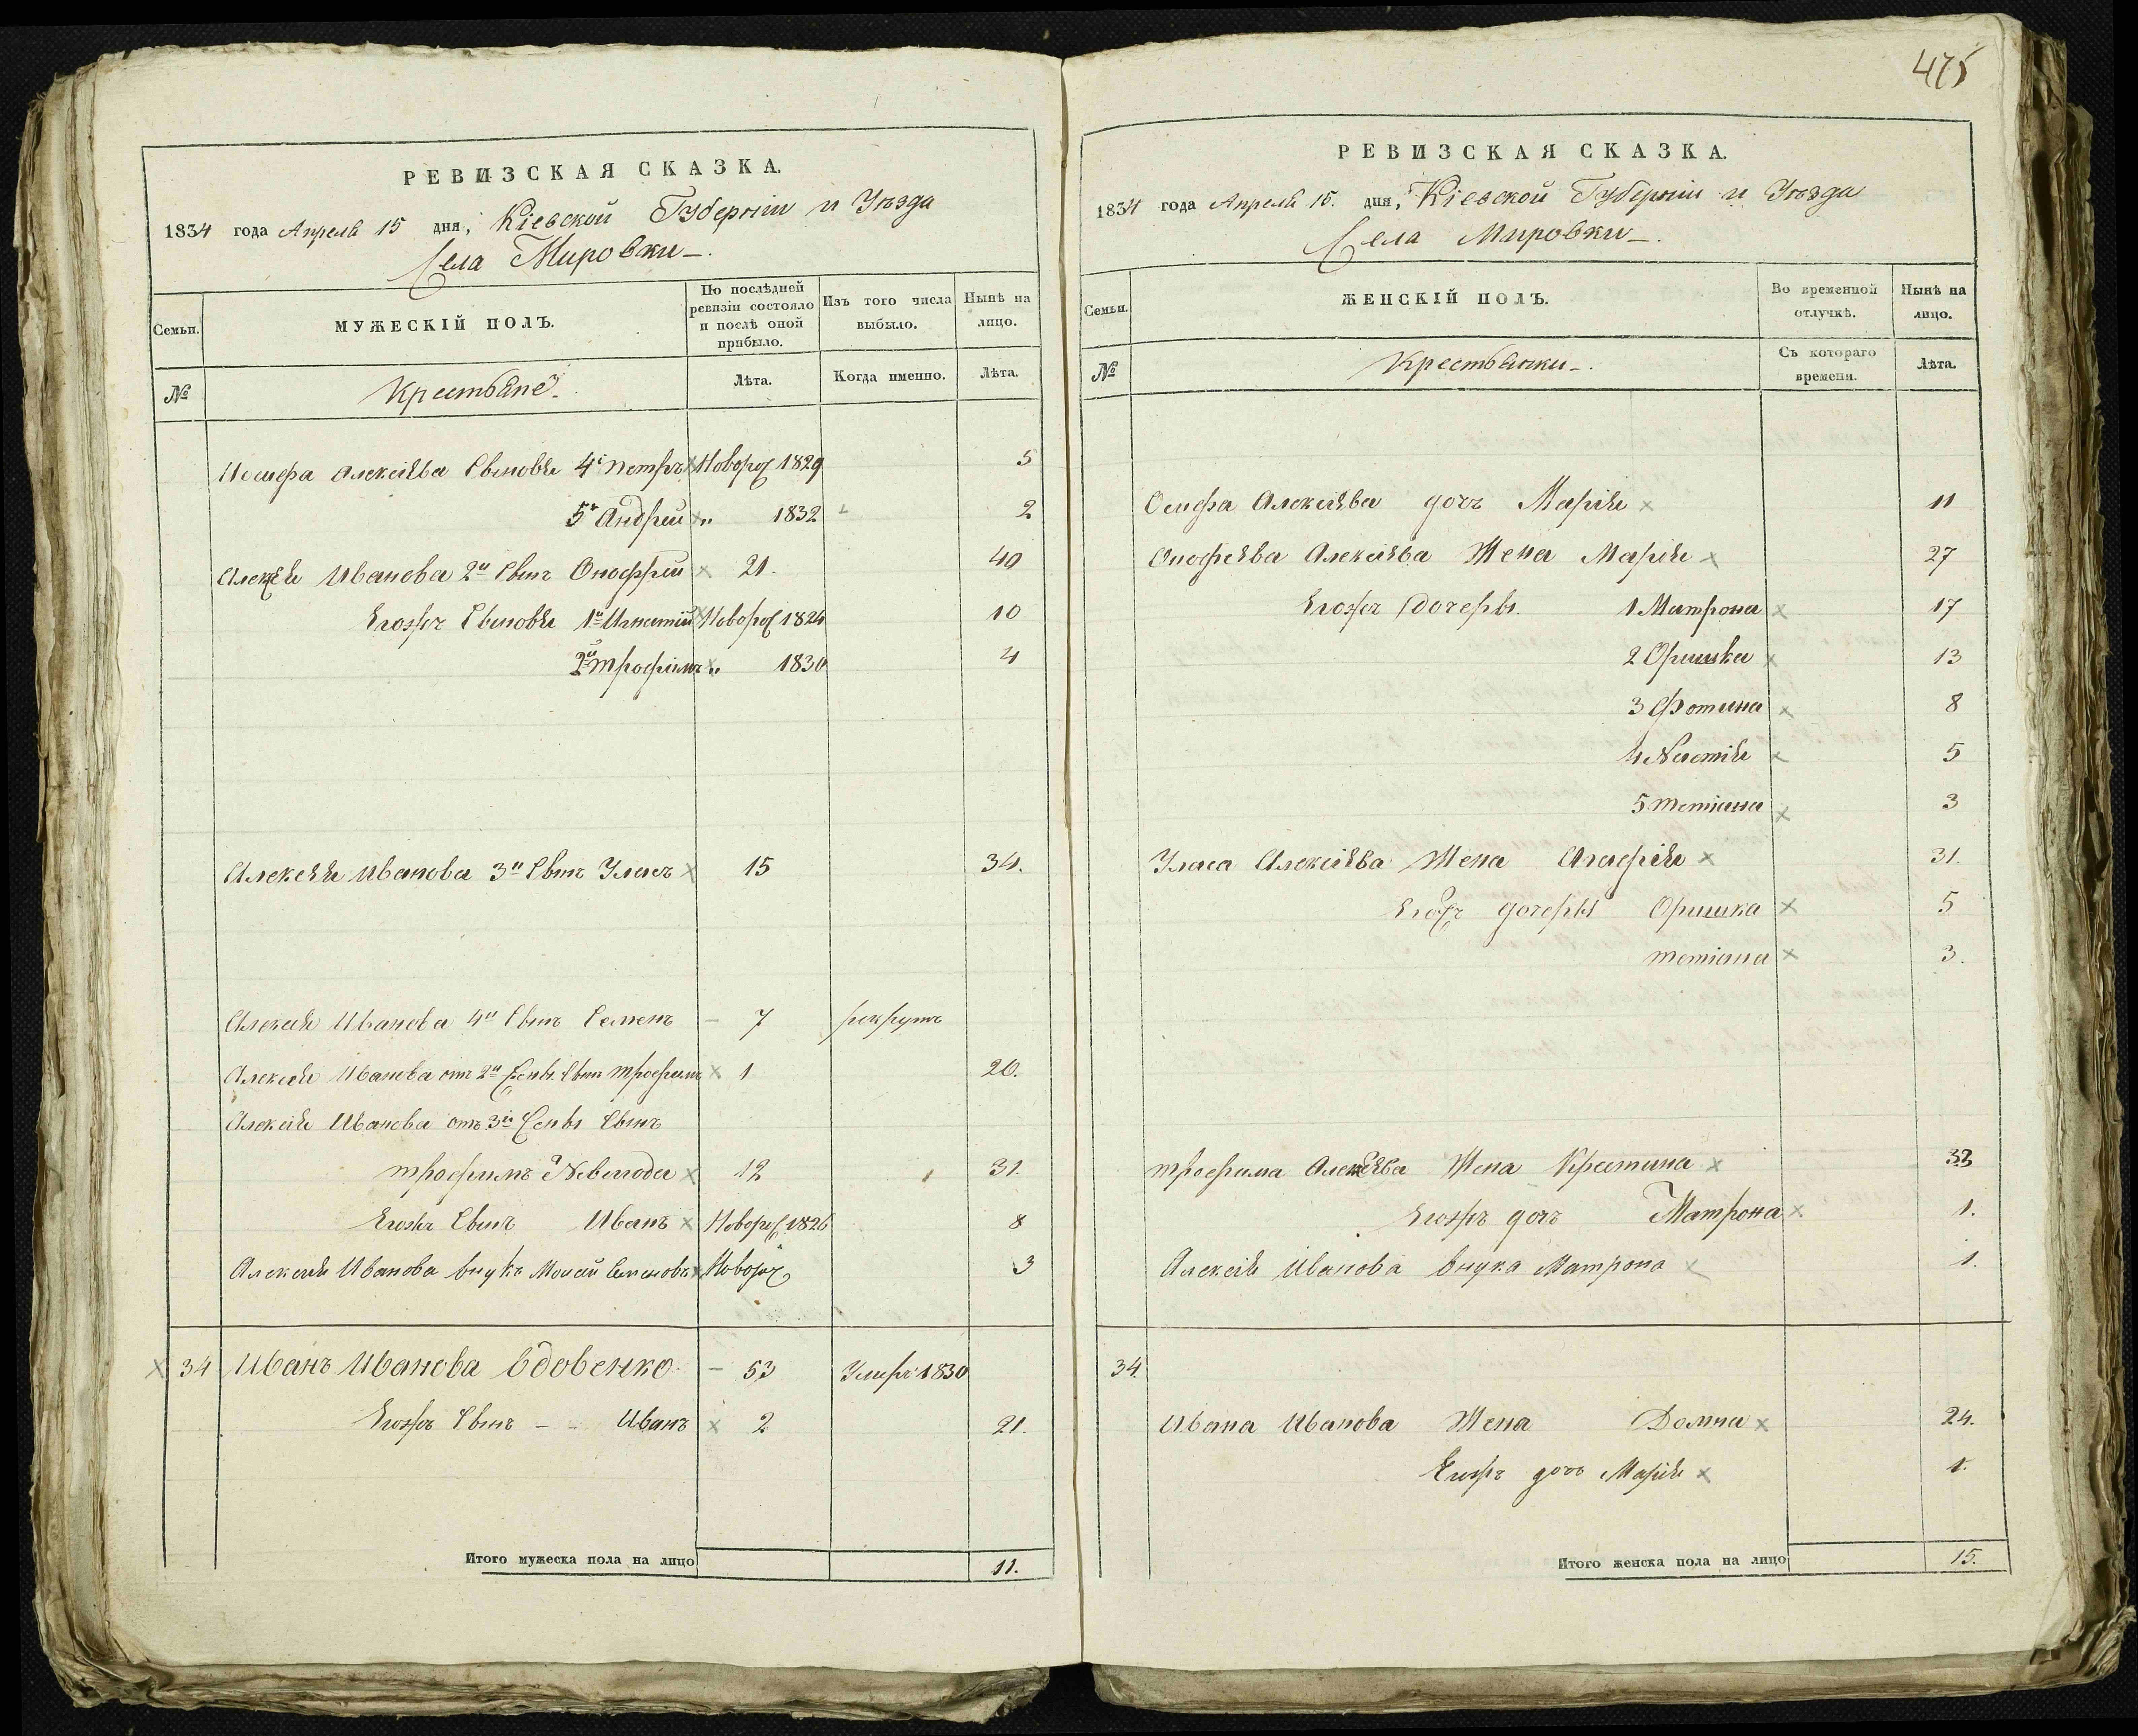 475
РЕВИЗСКАЯ СКАЗКА.
1834 года Апреля 15 дня, Кіевской Губерніи и Уѣзда
Села Мировки
Семьи.
МУЖЕСКІЙ ПОЛЪ.
По послѣдней ревизіи состояло и послѣ оной прибыло.
Изъ того числа выбыло.
Нынѣ на лицо.
№
Крестьяне
Лѣта.
Когда именно.
Лѣта.
Алексѣева Сыновья 4й Петръ Новорож 1829 5
5й Андрей „ 1832 2
Алексѣя Иванова 2й Сынъ Оноффрей 21. 40
Егожъ Сыновья 1й Игнатій Новорож 1824 10
2й Трофимъ „ 1830 4
Алексѣя Иванова 3й Сынъ Уласъ 15 34.
Алексѣя Иванова 4й Сынъ Семенъ – 7 рекрутъ
Алексѣя Иванова отъ 2й Жены Сынъ Трофимъ 1 20.
Алексѣя Иванова отъ 3й Жены Сынъ
Трофимъ 12 31.
Егожъ Сынъ Иванъ Новорож 1826 8
Алексѣя Иванова внукъ Моисей Семеновъ Новорож 3
34 Иванъ Иванова Вдовенко – 53 Умеръ 1830
Егожъ Сынъ – – Иванъ 2 21.
Итого мужеска пола на лицо 11.
РЕВИЗСКАЯ СКАЗКА.
1834 года Апреля 15. дня, Кіевской Губерніи и Уѣзда
Села Мировки
Семьи.
ЖЕНСКІЙ ПОЛЪ.
Во временной отлучкѣ.
Нынѣ на лицо.
№
Крестьянки
Съ котораго времени.
Лѣта.
Алексѣева дочь Марія 11
Онофрѣева Алексѣева Жена Марія 27
Егожъ дочеры 1 Матрона 17
2 Оришка 13
3 Фотина 8
4 Настія 5
5 Тетіана 3
Уласа Алексѣева Жена Агафія 31.
Егожъ дочеры Оришка 5
Тетіана 3.
Трофима Алексѣева Жена Крестина 33
Егожъ дочь Матрона 1.
Алексѣя Иванова внука Матрона 1.
34.
Ивана Иванова Жена Домна 24.
Егожъ дочь Марія 1.
Итого женска пола на лицо 15.